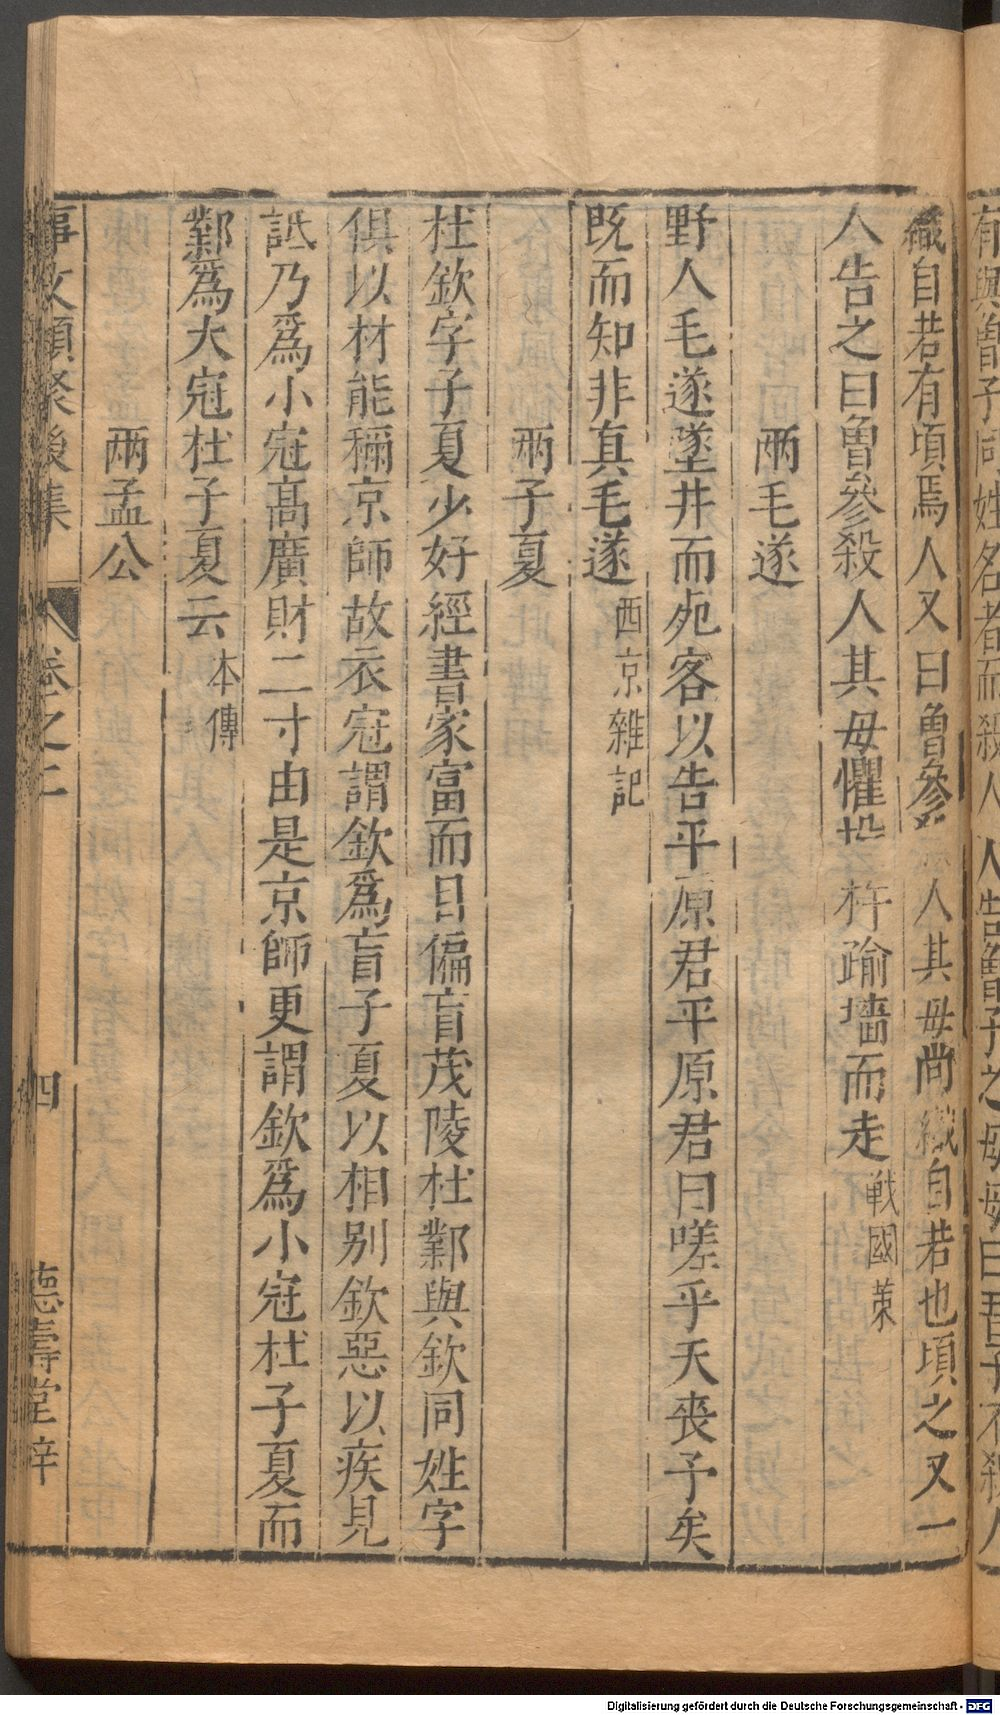 有與曾子同姓名者而殺人人告曾子之母母曰吾子不殺人
織自若有頃焉人又曰魯參人其毋尚織自若也頃之又一
人告之曰魯參殺人其毋懼投杼踰墻而走戰國策
兩毛遂
野人毛遂墜井而死客以告平原君平原君曰嗟乎天喪予矣
既而知非真毛遂西京雜記
兩子夏
杜欽字子夏少好經書家富而目偏盲茂陵杜鄴與欽同姓字
俱以材能稱京師故衣冠謂欽為盲子夏以相别欽惡以疾見
詆乃爲小冠高廣財二寸由是京師更謂欽爲小冠杜子夏而
鄴爲大冠杜子夏云本傳
兩孟公
事文類聚後集 卷之二 四 德壽堂梓
Digitalisierung gefördert durch die Deutsche Forschungsgemeinschaft - DFG